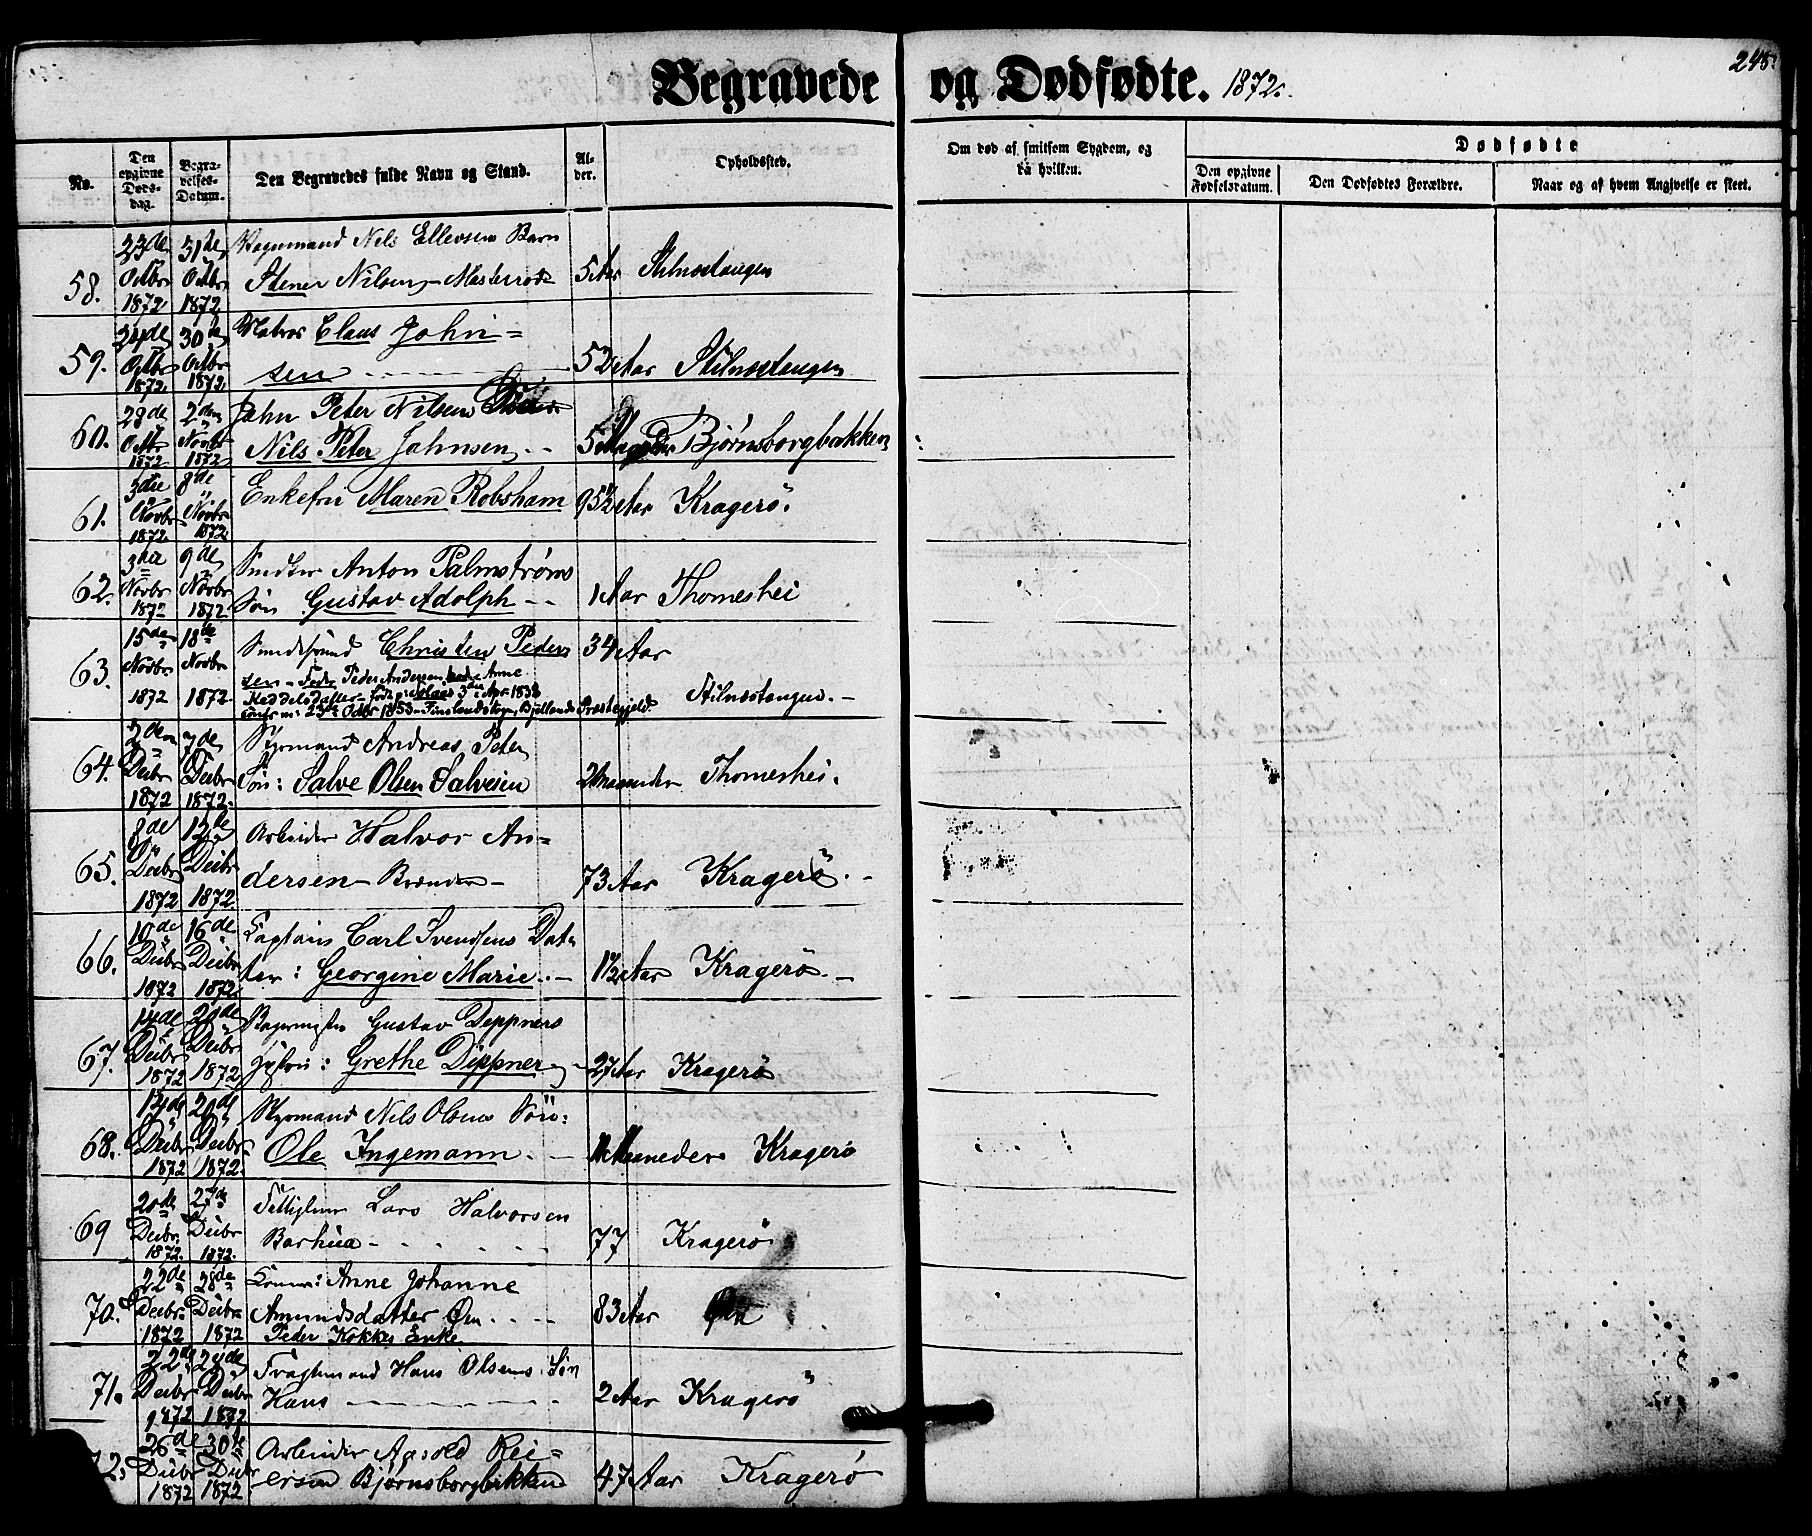 Begravede og Dødfødte. 1872.
245.
No.
Den opgivne Døds-dag.
Begra-velses-Datum.
Den Begravedes fulde Navn og Stand.
Al-der.
Opholdssted.
Om død af smitsom Sygdom, og paa hvilken.
Dødfødte
Den opgivne Fødselsdatum.
Den Dødfødtes Forældre.
Naar og af hvem Angivelse er skeet.
58. 23de Octbr 1872 31de Octbr 1872 Nils Ellevsens Barn
Stener Nilsen 5 Aar Stilnestangen
59. 24de Octbr 1872 30te Octbr 1872 Matros Claus John=
sen 52 Aar Stilnestangen
60. 28de Octbr 1872 2den Novbr 1872 John Peter Nilsens
Nils Peter Johnsen 5 Bjørnsborgbakken
61. 3die Novbr 1872 8de Novbr 1872 Enkefru Maren Robsham 95½ Aar Kragerö.
62. 3die Novbr 1872 9de Novbr 1872 Snedker Anton Palmstrøms
Søn Gustav Adolph 1 Aar Thomeshei
63. 15de Novbr 1872 18de Novbr 1872 Christen Peder
sen - Fader Peder Andersen, Moder Anne 34 Aar
Keddelsdatter 3die Apr. 1838
confirm: 23de Octbr 1853 - Finslands Sogn, Bjellands Præstegjeld. Stilnestangen.
64. 2den Decbr 1872 7de Decbr 1872 Styrmand Andreas Peter
Søn: Salve Olsen Salvesen 2 Maaneder Thomeshei.
65. 8de Decbr 1872 12te Decbr 1872 Arbeider Halvor An=
dersen 73 Aar Kragerö.
66. 10de Decbr 1872 16de Decbr 1872 Captain Carl Svendsens Dat=
ter: Georgine Marie. 1½ Aar Kragerö.
67. 14de Decbr 1872 20de Decbr 1872 Bagermester Gustav Deppners
Grethe Deppner 27 Aar Kragerö
68. 14de Decbr 1872 20de Decbr 1872 Styrmand Nils Olsens Søn:
Ole Ingemann. Maaneder Kragerö
69 20de Decbr. 1872. 27de Decbr 1872. Fattiglem Lars Halvorsen
Barhua 77 Kragerö
70. 22de Decbr. 1872 28de Decbr 1872 Anne Johanne
Amundsdatter Øen 83 Aar Øen
Peder Kokkes Enke
71. 22de Decbr 1872 28de Decbr 1872 Fragtemand Hans Olsens Søn
Hans 2 Aar Kragerö
72. 26de Decbr 1872 30te Decbr 1872 Arbeider Aasold Rei=
ersen Bjørnsborgbakken 47 Aar Kragerö